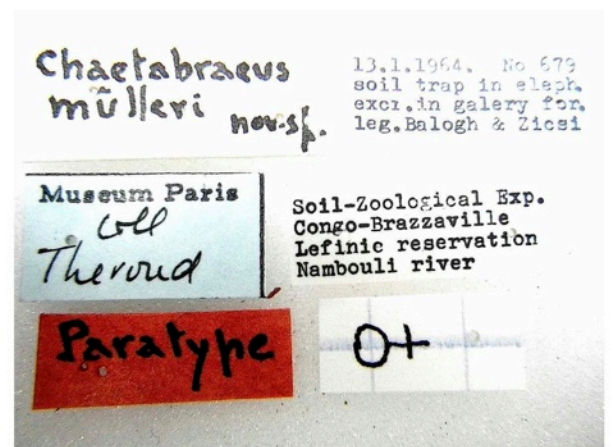 Chaetabraeus
mülleri nov.sp.
13.1.1964. No 679
soil trap in eleph.
excr.in galery for.
leg.Balogh & Zicsi
Museum Paris
Coll
Therond
Soil-Zoological Exp.
Congo-Brazzaville
Lefinic reservation
Nambouli river
Paratype
♀